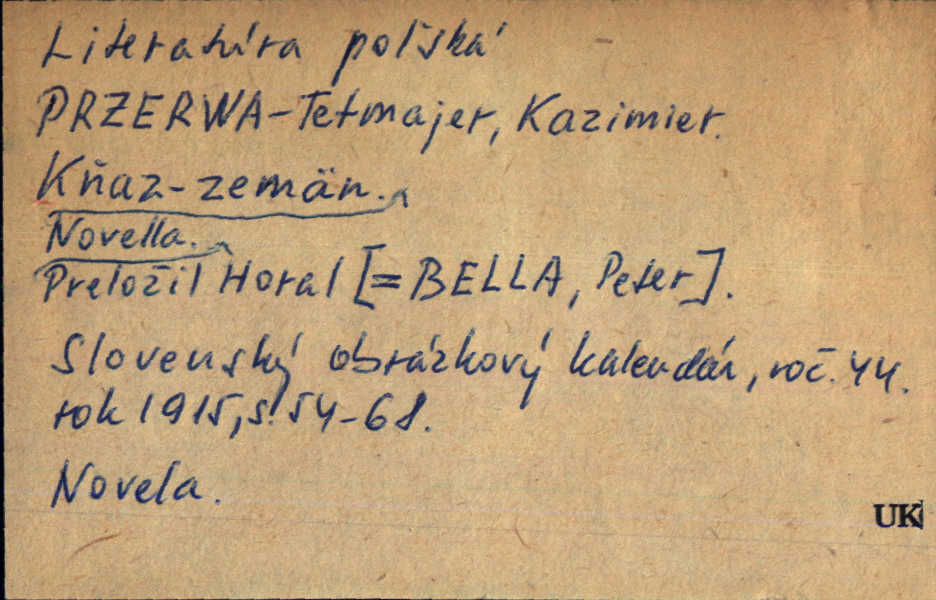 Literatúra poľská
PRZERWA-Tetmajer, Kazimier.
Kňaz-zemän.
Novella.
Preložil Horal [=BELLA, Peter].
Slovenský obrázkový kalendár, roč. 44.
rok 1915, s. 54-68.
Novela.
UK